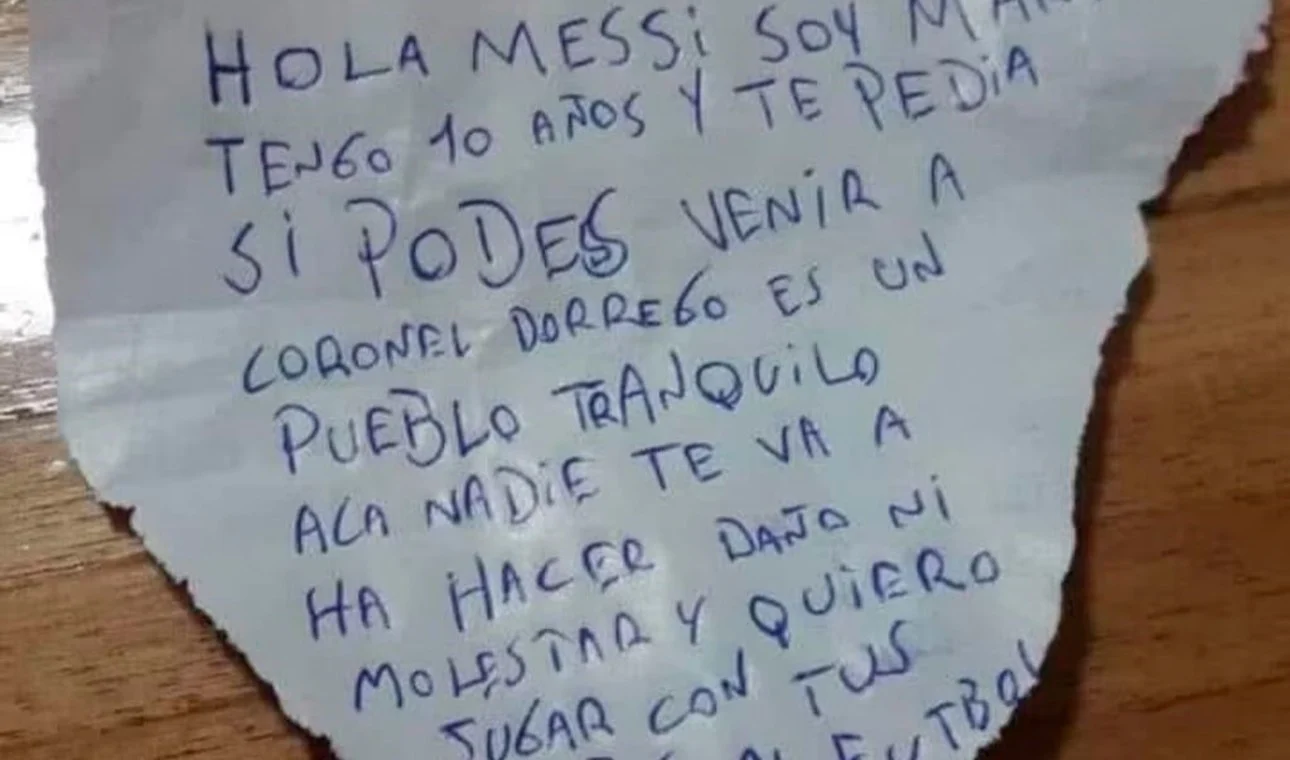 HOLA MESSi SOY
TENGO 10 AÑOS Y TE PEDiA
Si PODES VENiR A
CORONEL DORREGO ES UN
PUEBLO TRANQUiLO
ACA NADiE TE VA A
HA HACER DAÑO Ni
MOLESTAR Y QUiERO
JUGAR CON TUS
AL FUTBOL